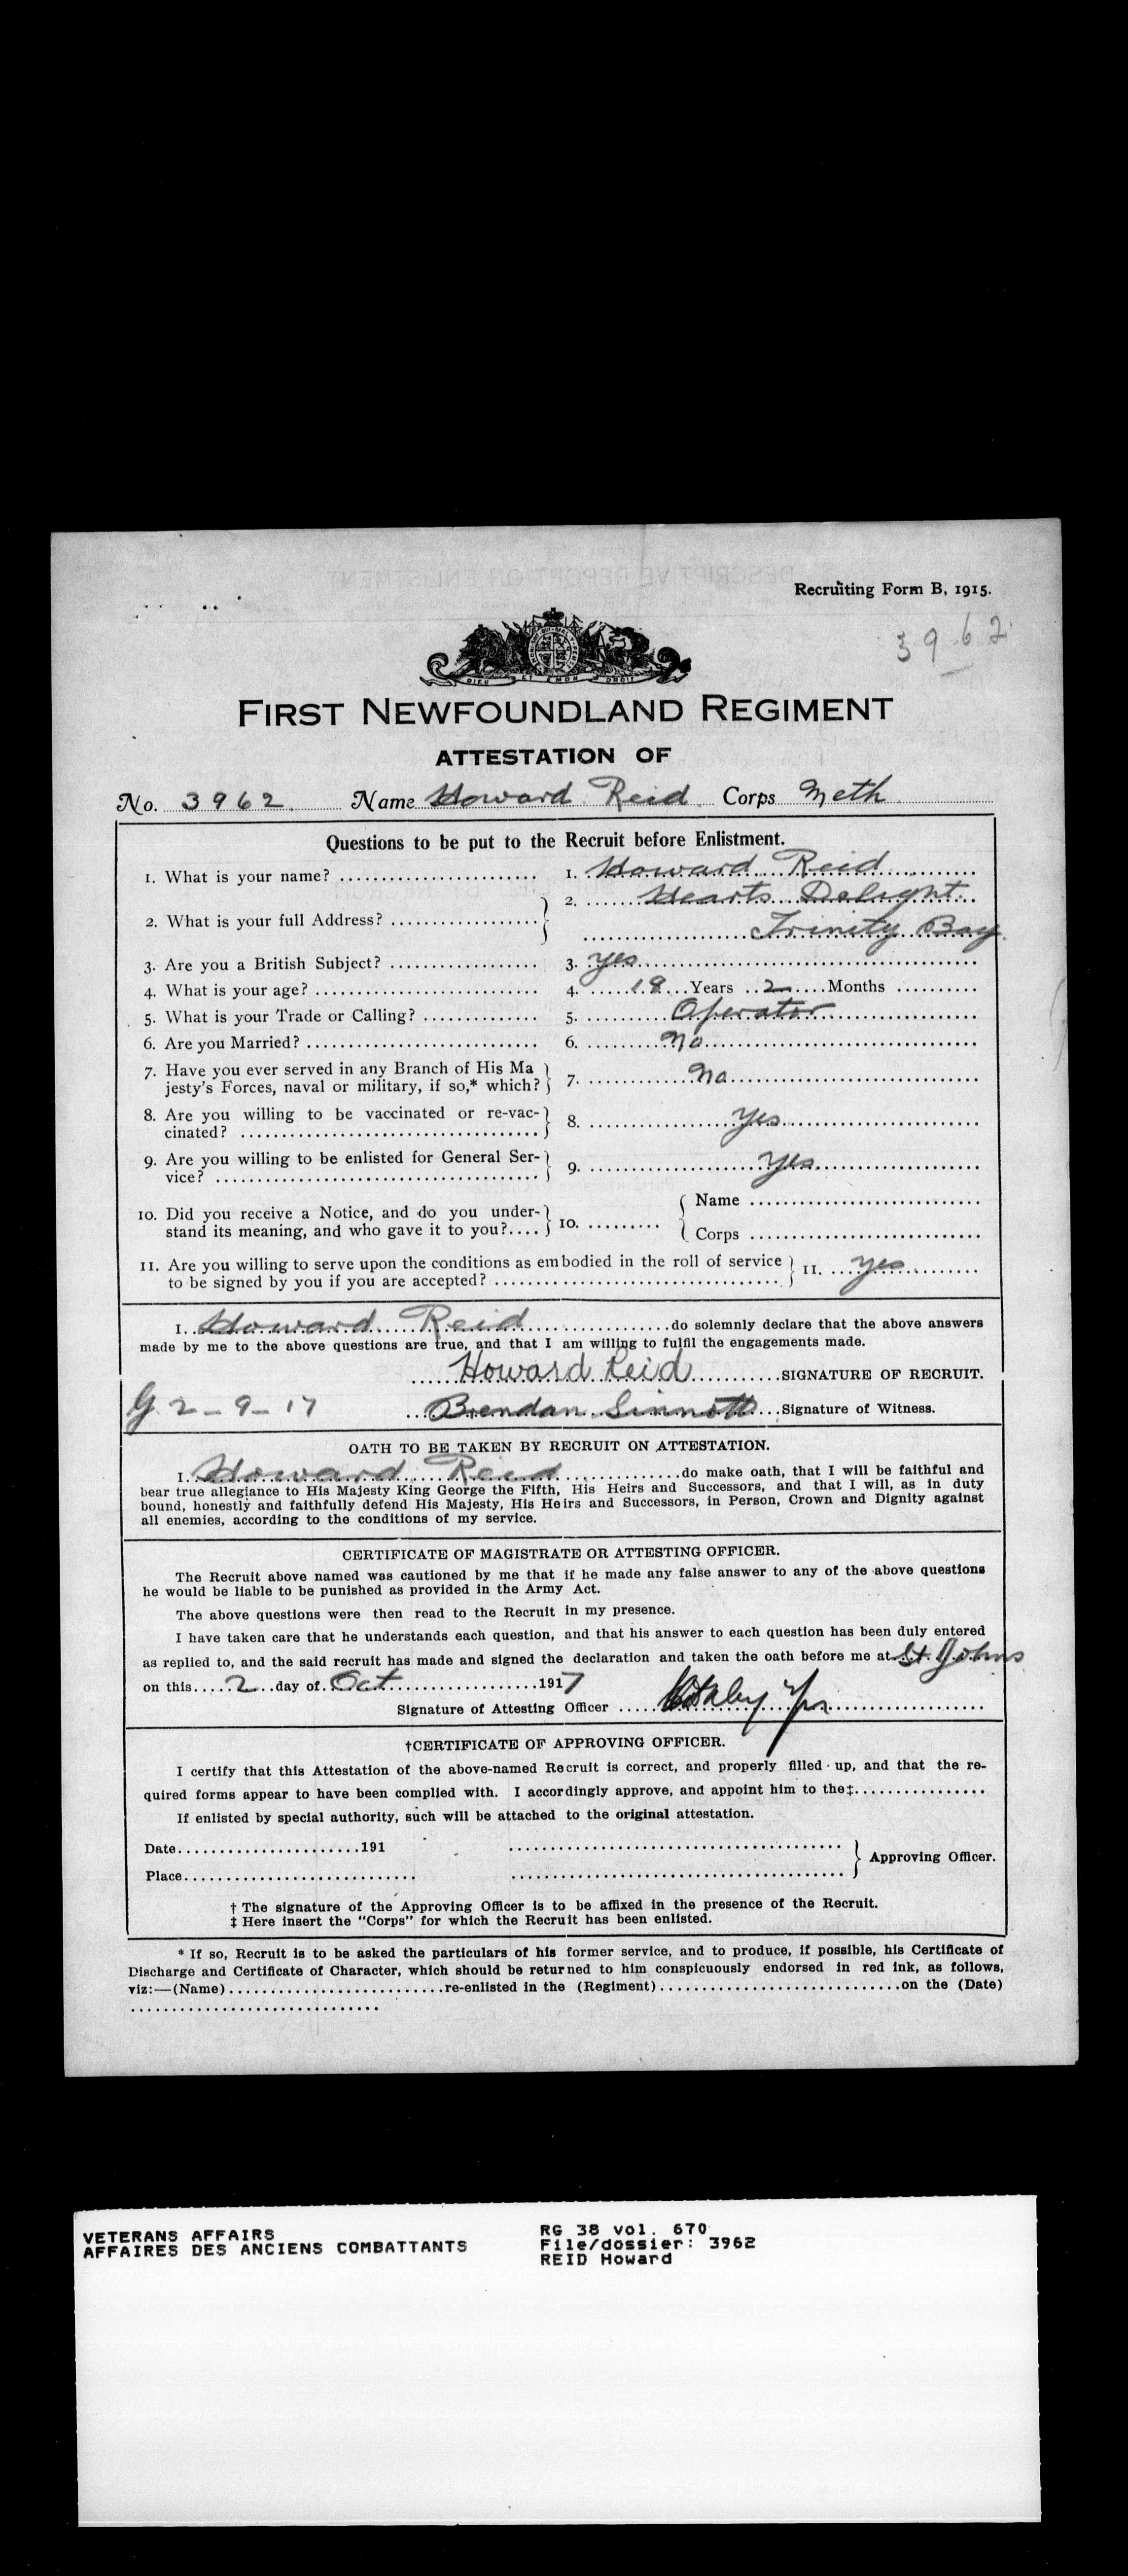 Recruiting Form B, 1915.
3962
DIEU ET MON DROIT
FIRST NEWFOUNDLAND REGIMENT
ATTESTATION OF
No. 3962 Name Howard Reid Corps Meth
Questions to be put to the Recruit before Enlistment.
1. What is your name? ........ 1. Howard Reid
2. What is your full Address? ........ 2. Hearts Delight
Trinity Bay
3. Are you a British Subject? ........ 3. Yes
4. What is your age? ........ 4. 18 Years 2 Months
5. What is your Trade or Calling? ........ 5. Operator
6. Are you Married? ........ 6. No
7. Have you ever served in any Branch of His Ma
jesty's Forces, naval or military, if so,* which? 7. No
8. Are you willing to be vaccinated or re-vac-
cinated? ........ 8. Yes
9. Are you willing to be enlisted for General Ser-
vice? ........ 9. Yes
10. Did you receive a Notice, and do you under-
stand its meaning, and who gave it to you?.... 10. ........ { Name ........
Corps ........
11. Are you willing to serve upon the conditions as embodied in the roll of service
to be signed by you if you are accepted? ........ 11. Yes
I. Howard Reid ........do solemnly declare that the above answers
made by me to the above questions are true, and that I am willing to fulfil the engagements made.
Howard Reid ........SIGNATURE OF RECRUIT.
G 2-9-17 Brendan Sinnott ....Signature of Witness.
OATH TO BE TAKEN BY RECRUIT ON ATTESTATION.
I. Howard Reid ........do make oath, that I will be faithful and
bear true allegiance to His Majesty King George the Fifth, His Heirs and Successors, and that I will, as in duty
bound, honestly and faithfully defend His Majesty, His Heirs and Successors, in Person, Crown and Dignity against
all enemies, according to the conditions of my service.
CERTIFICATE OF MAGISTRATE OR ATTESTING OFFICER.
The Recruit above named was cautioned by me that if he made any false answer to any of the above questions
he would be liable to be punished as provided in the Army Act.
The above questions were then read to the Recruit in my presence.
I have taken care that he understands each question, and that his answer to each question has been duly entered
as replied to, and the said recruit has made and signed the declaration and taken the oath before me at St. Johns
on this.....2...day of. Oct ........1917
Signature of Attesting Officer ........
†CERTIFICATE OF APPROVING OFFICER.
I certify that this Attestation of the above-named Recruit is correct, and properly filled up, and that the re-
quired forms appear to have been complied with. I accordingly approve, and appoint him to the‡........
If enlisted by special authority, such will be attached to the original attestation.
Date........191 ........
Place........ ........ } Approving Officer.
† The signature of the Approving Officer is to be affixed in the presence of the Recruit.
‡ Here insert the "Corps" for which the Recruit has been enlisted.
* If so, Recruit is to be asked the particulars of his former service, and to produce, if possible, his Certificate of
Discharge and Certificate of Character, which should be returned to him conspicuously endorsed in red ink, as follows,
viz:—(Name)........re-enlisted in the (Regiment)........on the (Date)
........
VETERANS AFFAIRS
AFFAIRES DES ANCIENS COMBATTANTS
RG 38 vol. 670
File/dossier: 3962
REID Howard